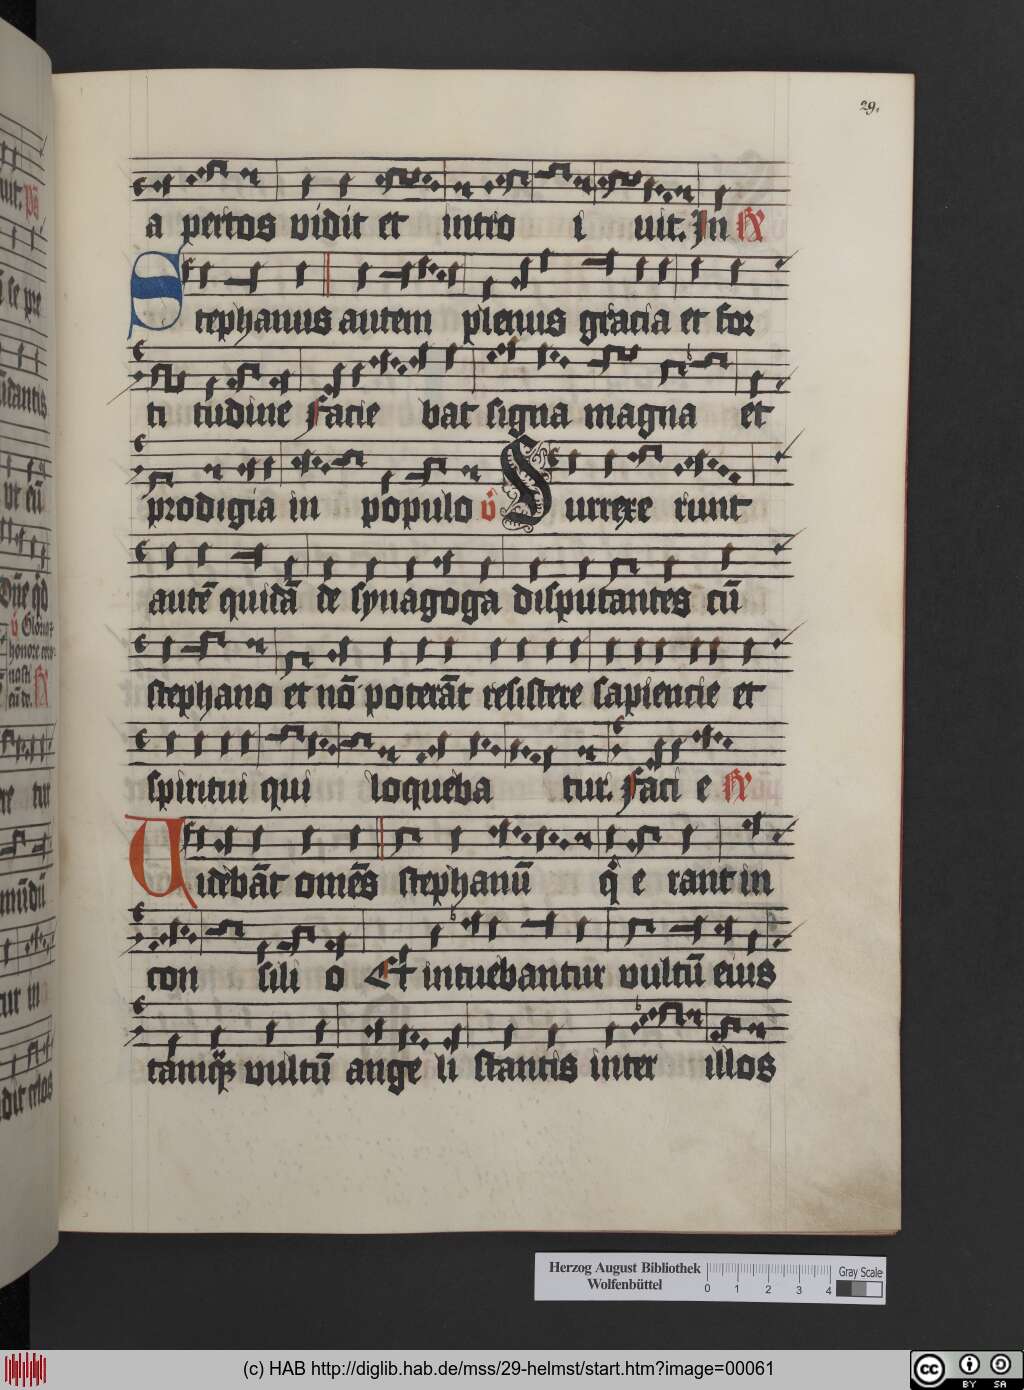 29.
a pertos vidit et intro i uit. In R
Stephanus autem plenus gracia et for
ti tudine facie bat signa magna et
prodigia in populo v Surrexe runt
autē quidā de synagoga disputantes cū
stephano et nō poterāt resistere sapiencie et
spiritui qui loqueba tur. faci e R
Uidebāt omēs stephanū q e rant in
con sili o Et intuebantur vultū eius
tamq vultū ange li stantis inter illos
Herzog August Bibliothek
Wolfenbüttel
0 1 2 3 4
Gray Scale
(c) HAB http://diglib.hab.de/mss/29-helmst/start.htm?image=00061
cc BY SA